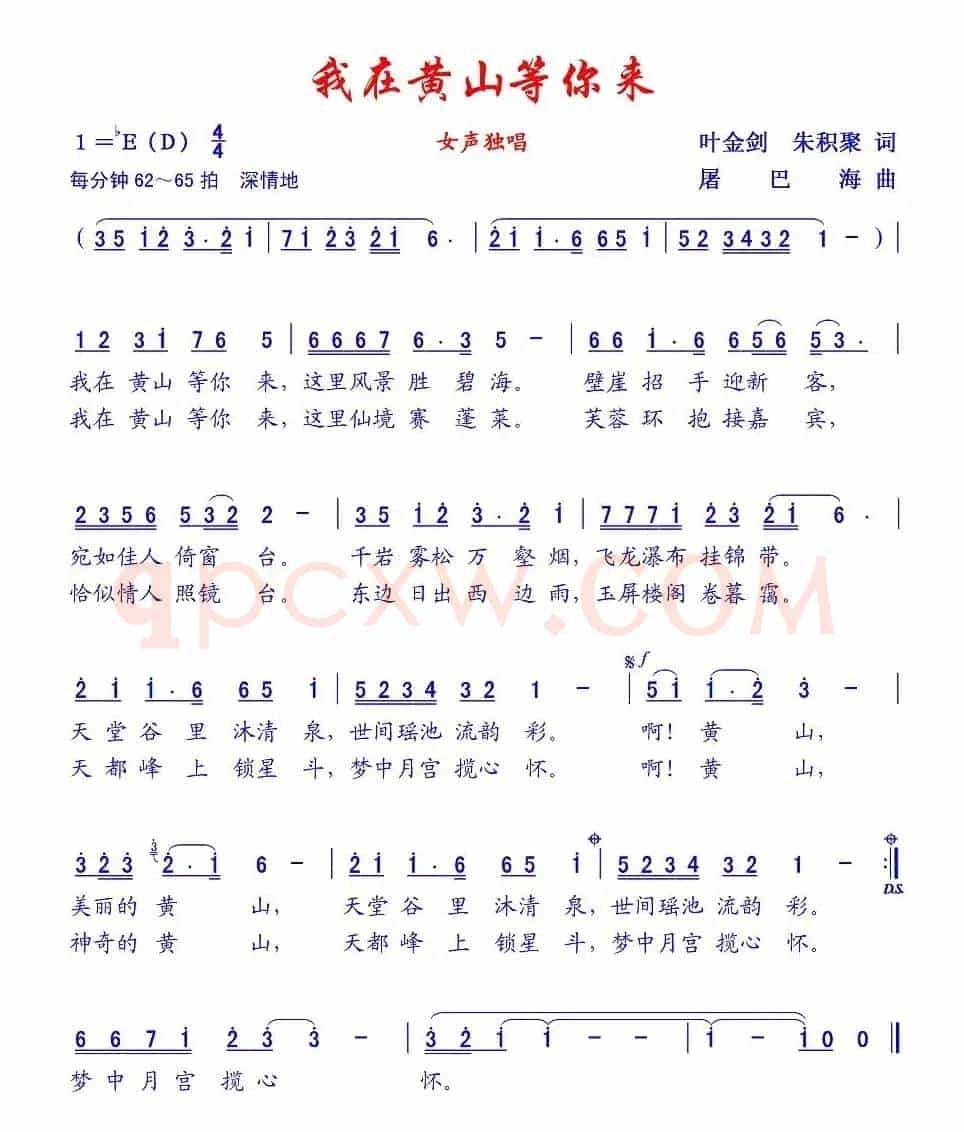 我在黄山等你来
1＝♭E（D） 4/4 女声独唱 叶金剑 朱积聚 词
每分钟62～65拍 深情地 屠巴海 曲
（3 5 i̇ 2̇ 3̇ · 2̇ i̇ | 7 i̇ 2̇ 3̇ 2̇ i̇ 6 · | 2̇ i̇ i̇ · 6 6 5 i̇ | 5 2 3 4 3 2 1 － ）|
1 2 3 i̇ 7 6 5 | 6 6 6 7 6 · 3 5 － | 6 6 i̇ · 6 6 5 6 5 3 · |
我在 黄山 等你 来，这里风景 胜 碧 海。 壁崖 招 手 迎新 客，
我在 黄山 等你 来，这里仙境 赛 蓬 莱。 芙蓉 环 抱 接嘉 宾，
2 3 5 6 5 3 2 2 － | 3 5 i̇ 2̇ 3̇ · 2̇ i̇ | 7 7 7 i̇ 2̇ 3̇ 2̇ i̇ 6 · |
宛如佳人 倚窗 台。 千岩 雾松 万 壑 烟，飞龙瀑布 挂锦 带。
恰似情人 照镜 台。 东边 日出 西 边 雨，玉屏楼阁 卷暮 霭。
qpcxw.COM
𝄋 f
2̇ i̇ i̇ · 6 6 5 i̇ | 5 2 3 4 3 2 1 － | 5 i̇ i̇ · 2̇ 3̇ － |
天堂 谷 里 沐清 泉，世间瑶池 流韵 彩。 啊！黄 山，
天都 峰 上 锁星 斗，梦中月宫 揽心 怀。 啊！黄 山，
3̇ 2̇ 3̇ 3̇ 2̇ · i̇ 6 － | 2̇ i̇ i̇ · 6 6 5 i̇ 𝄌 | 5 2 3 4 3 2 1 － 𝄌 :‖
D.S.
美丽的 黄 山， 天堂 谷 里 沐清 泉，世间瑶池 流韵 彩。
神奇的 黄 山， 天都 峰 上 锁星 斗，梦中月宫 揽心 怀。
6 6 7 i̇ 2̇ 3̇ 3̇ － | 3̇ 2̇ i̇ i̇ － | i̇ － i̇ 0 0 ‖
梦中月宫 揽心 怀。